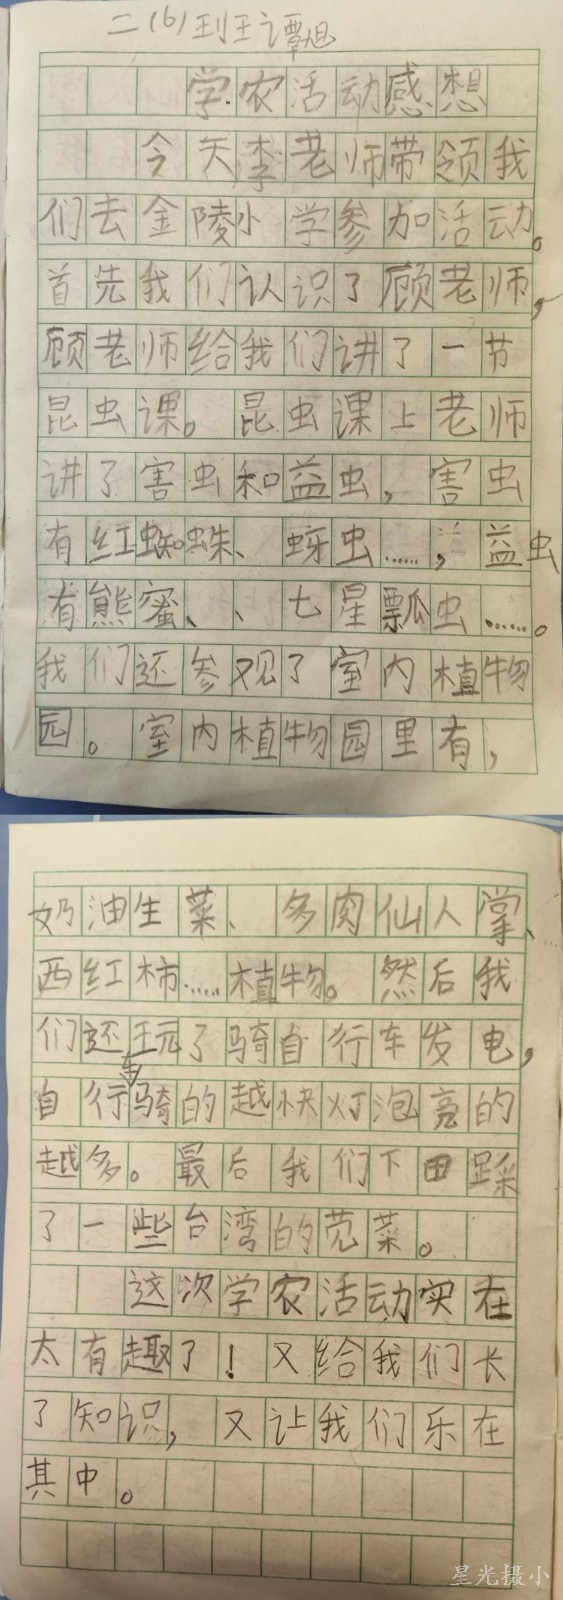 二(6)王谭旭
学农活动感想
今天李老师带领我
们去金陵小学参加活动。
首先我们认识了顾老师，
顾老师给我们讲了一节
昆虫课。昆虫课上老师
讲了害虫和益虫，害虫
有红蜘蛛、蚜虫……，益虫
有熊蜜、、七星瓢虫……。
我们还参观了室内植物
园。室内植物园里有，
奶油生菜、多肉仙人掌、
西红柿……植物。然后我
们还玩了骑自行车发电，
自行车骑的越快灯泡亮的
越多。最后我们下田踩
了一些台湾的苋菜。
这次学农活动实在
太有趣了！又给我们长
了知识，又让我们乐在
其中。
星光摄小